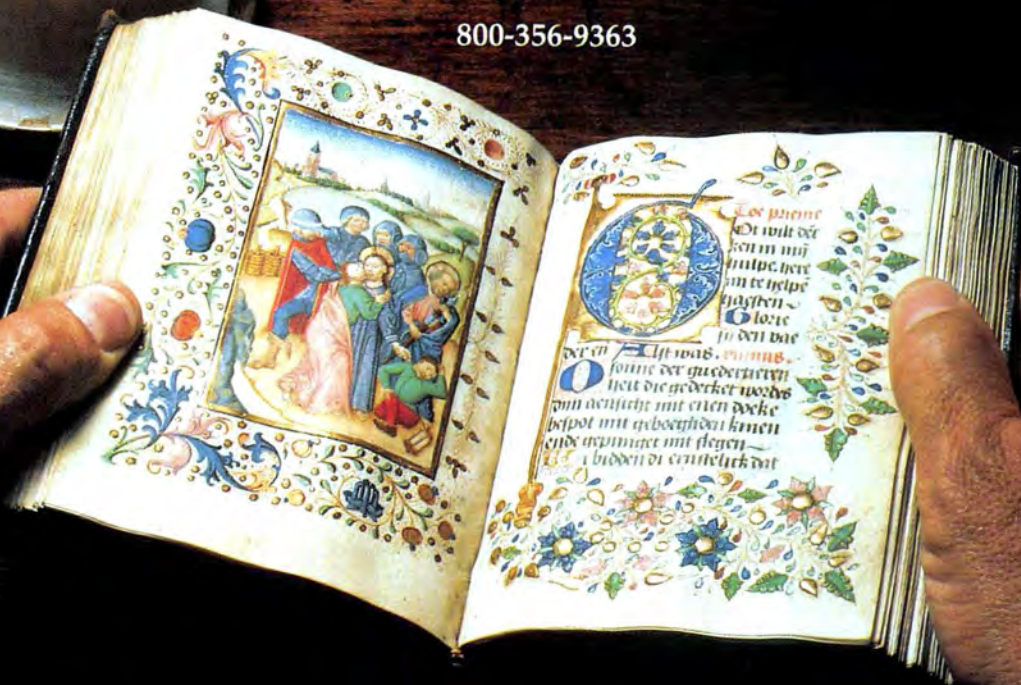 800-356-9363
Toe prieme
Ot wilt dēc
ken in mij
hulpe here
mi te helpē
haesten
Glorie
ſy den vae
der en Alst was. ymnus.
O sonne der guedertieren
heit die gedecket wordes
dijn aensicht mit enen doeke
bespot mit geboeghden knien
ende gepiniget mit slegen
bidden di ernstelick dat